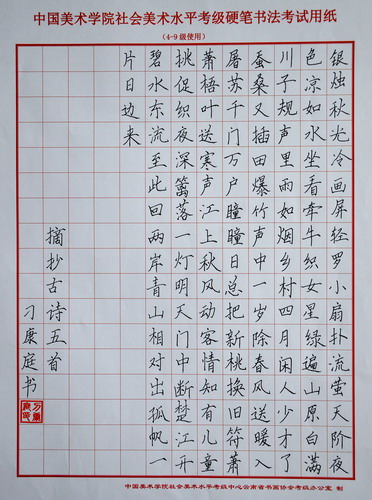 中国美术学院社会美术水平考级硬笔书法考试用纸
（4-9级使用）
银烛秋光冷画屏轻罗小扇扑流萤天阶夜
色凉如水坐看牵牛织女星绿遍山原白满
川子规声里雨如烟乡村四月闲人少才了
蚕桑又插田爆竹声中一岁除春风送暖入
屠苏千门万户瞳瞳日总把新桃换旧符萧
萧梧叶送寒声江上秋风动客情知有儿童
挑促织夜深篱落一灯明天门中断楚江开
碧水东流至此回两岸青山相对出孤帆一
片日边来
摘抄古诗五首
刁康庭书
中国美术学院社会美术水平考级中心云南省书画协会考级办公室 制